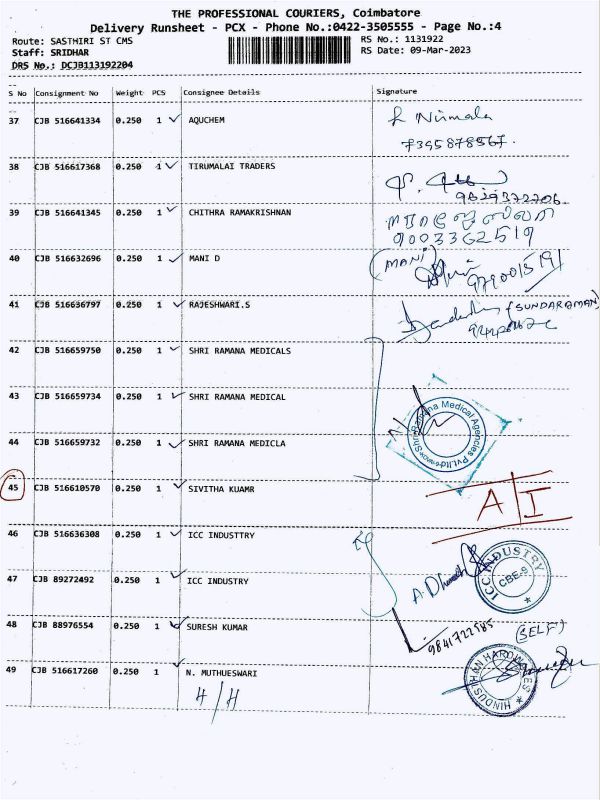 THE PROFESSIONAL COURIERS, Coimbatore
Delivery Runsheet - PCX - Phone No.:0422-3505555 - Page No.:4
Route: SASTHIRI ST CMS RS No.: 1131922
Staff: SRIDHAR RS Date: 09-Mar-2023
DRS No.: DCJB113192204
S No Consignment No Weight PCS Consignee Details Signature
37 CJB 516641334 0.250 1 AQUCHEM Nirmala
7395878567.
38 CJB 516617368 0.250 1 TIRUMALAI TRADERS
9829372706.
39 CJB 516641345 0.250 1 CHITHRA RAMAKRISHNAN
9003362519
40 CJB 516632696 0.250 1 MANI D (MANI)
41 CJB 516636797 0.250 1 RAJESHWARI.S (SUNDARAMAN)
42 CJB 516659750 0.250 1 SHRI RAMANA MEDICALS
43 CJB 516659734 0.250 1 SHRI RAMANA MEDICAL
Shri Ramana Medical Agencies Pvt.Ltd
44 CJB 516659732 0.250 1 SHRI RAMANA MEDICLA
45 CJB 516610570 0.250 1 SIVITHA KUAMR A/I
46 CJB 516636308 0.250 1 ICC INDUSTTRY
47 CJB 89272492 0.250 1 ICC INDUSTRY A. Dhinesh
ICC INDUSTRY
CBE-9
48 CJB 88976554 0.250 1 SURESH KUMAR 9841722585 (SELF)
49 CJB 516617260 0.250 1 N. MUTHUESWARI
4/H